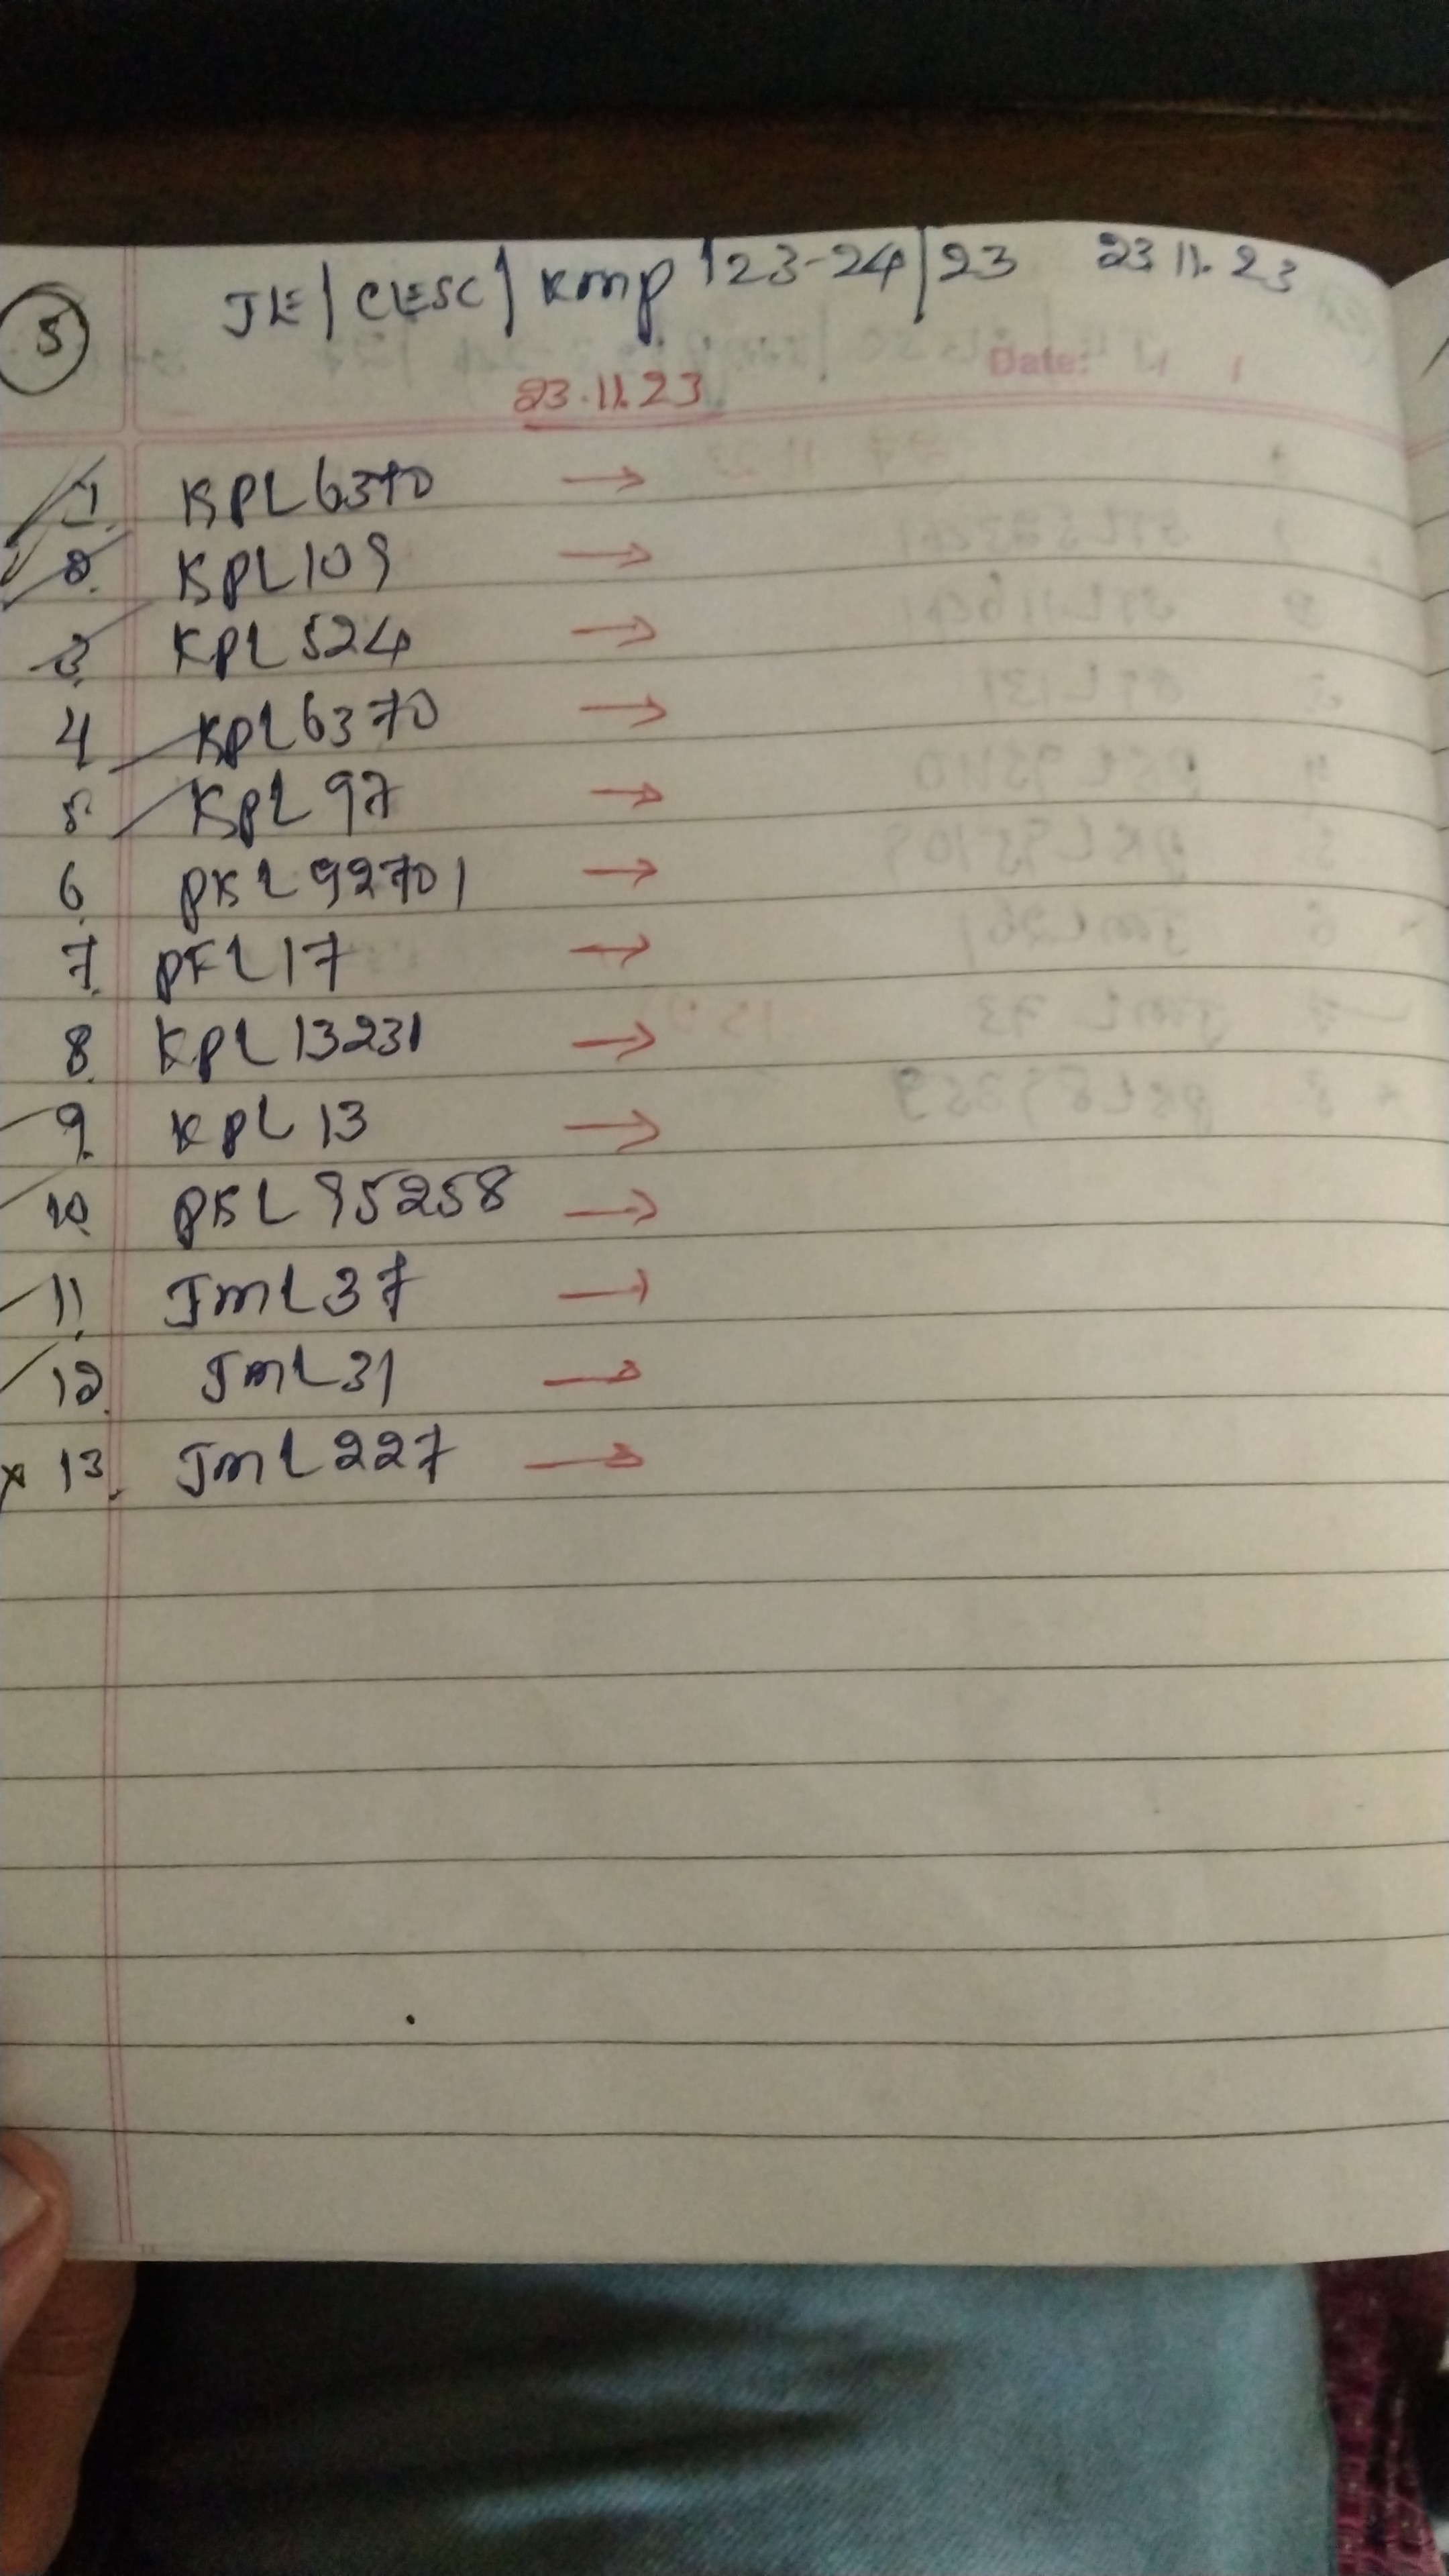 5
JE/CESC/Kmp/23-24/23 23.11.23
Date:
23.11.23
1. KPL6370 →
2. KPL109 →
3. KPL524 →
4 KPL6370 →
5. KPL97 →
6. PKL92701 →
7. PFL17 →
8. KPL13231 →
9. KPL13 →
10. PKL95258 →
11. JmL37 →
12. JmL31 →
x 13. JmL227 →